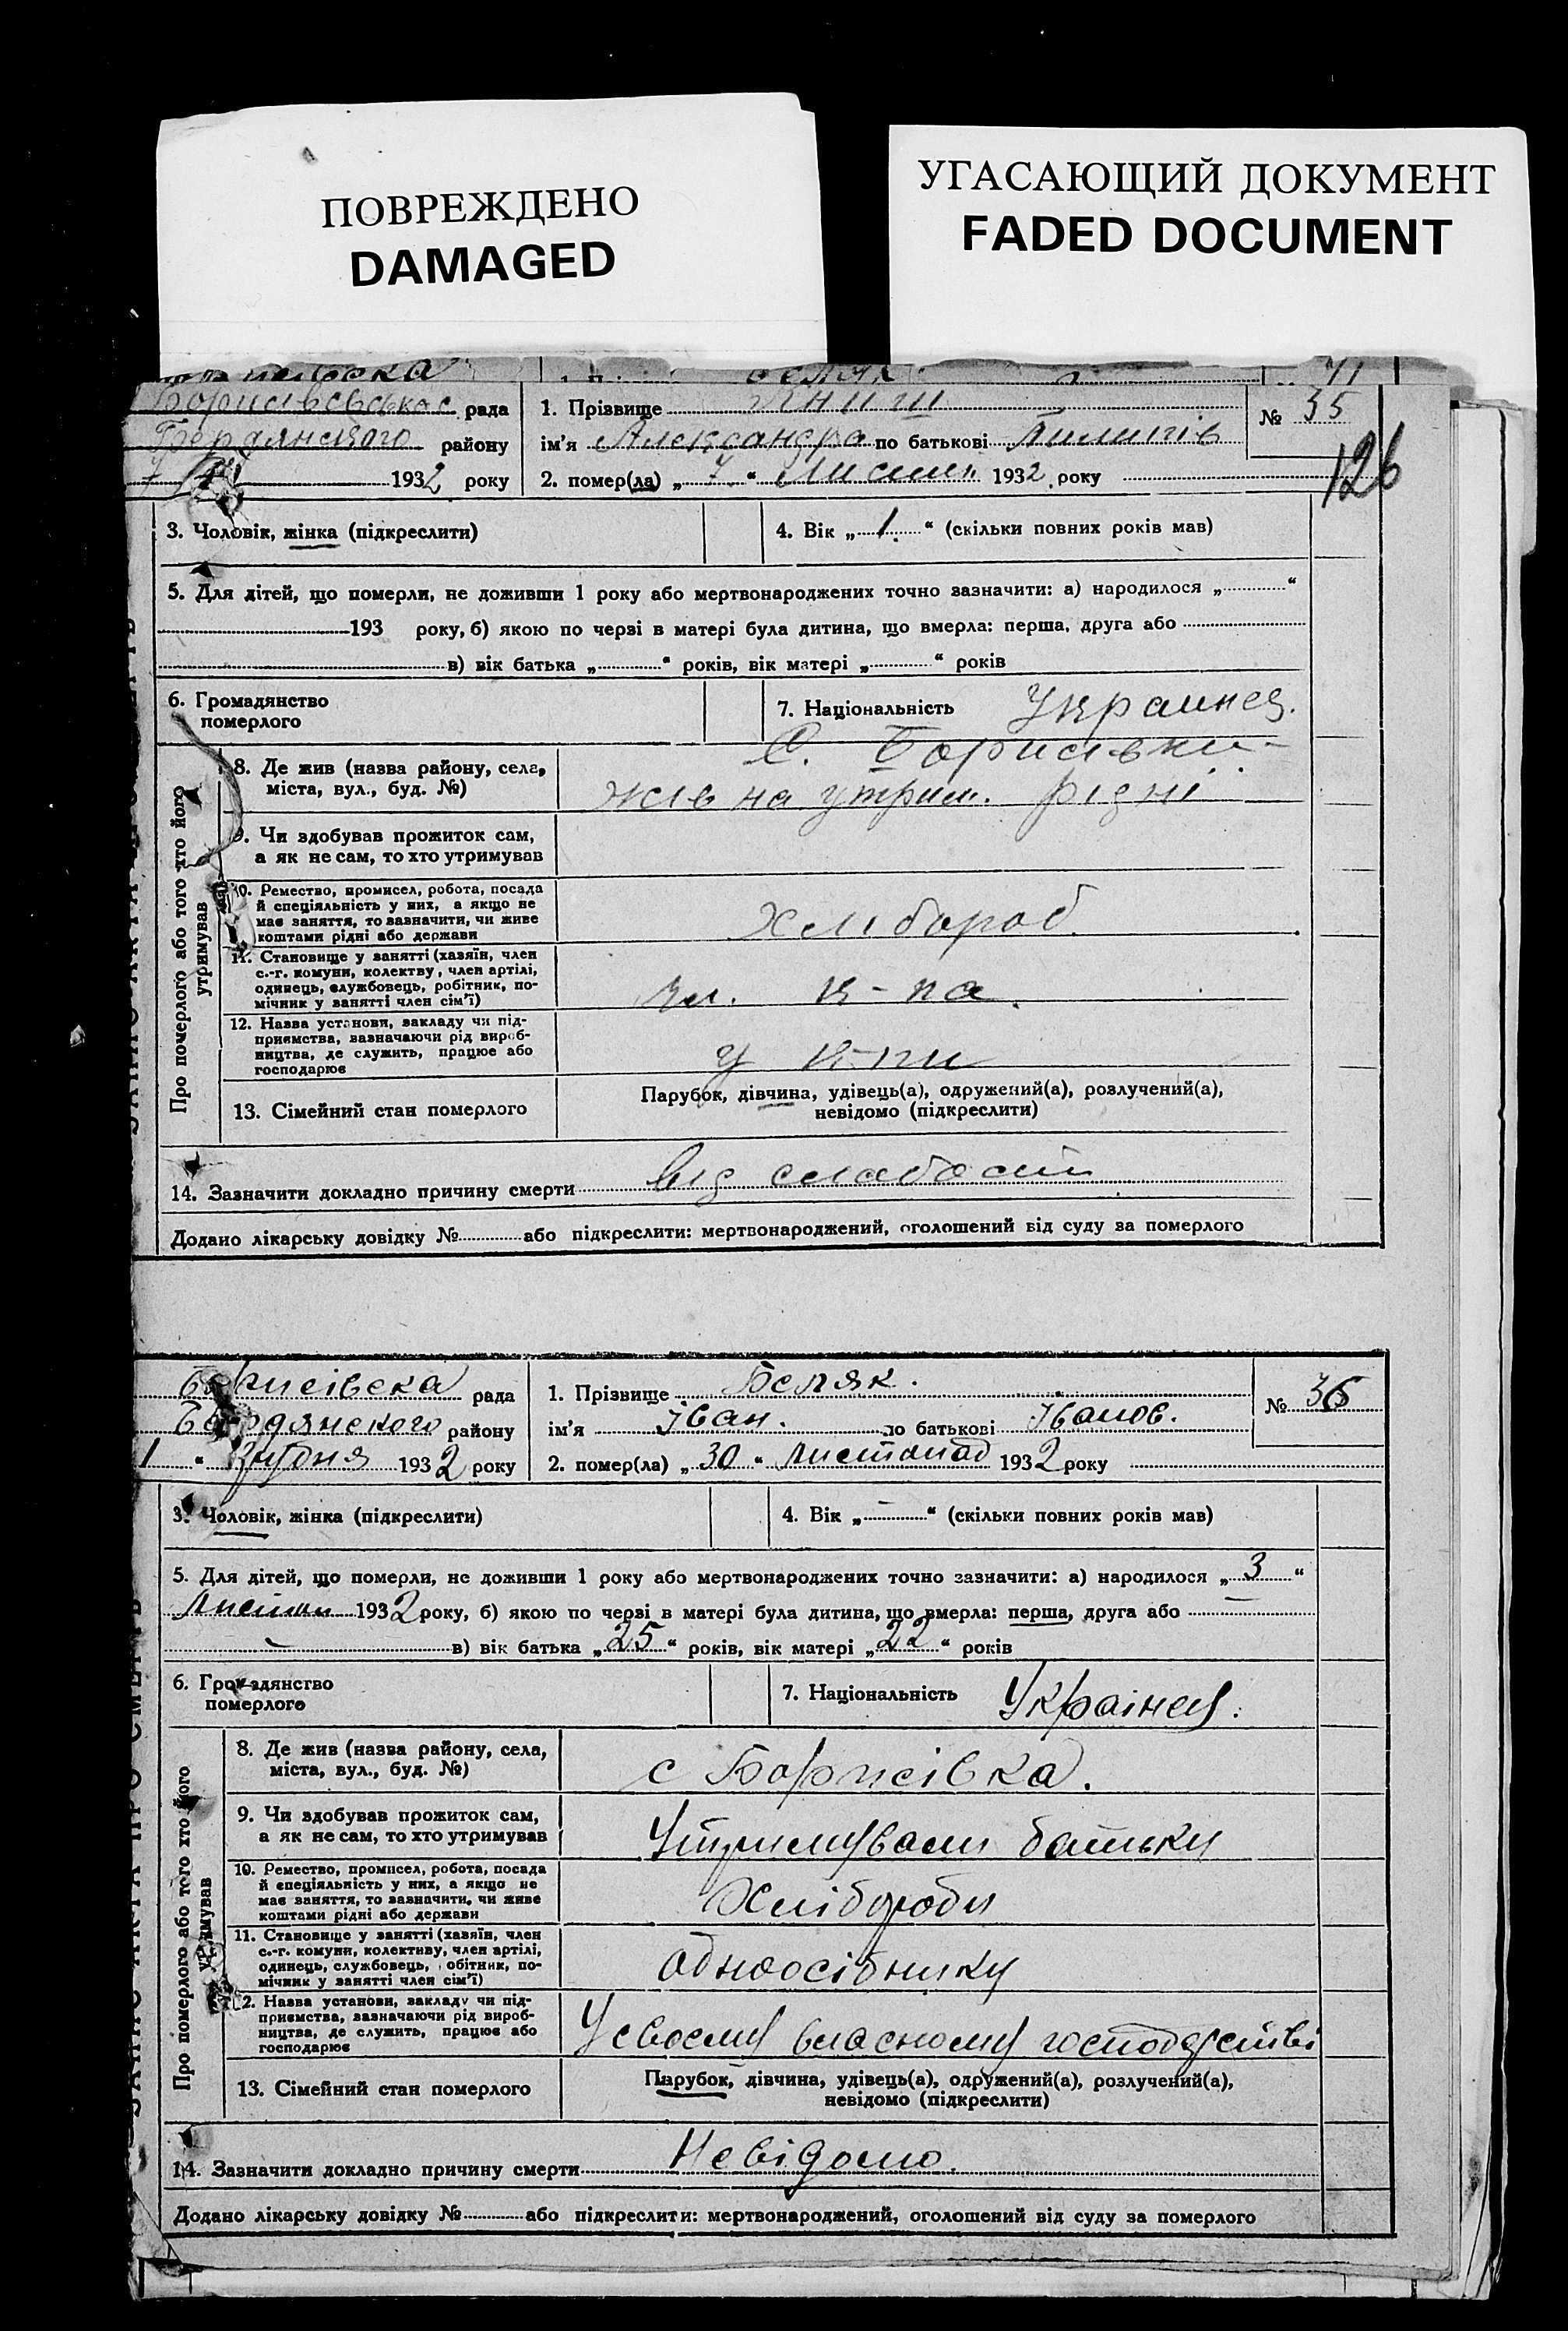 ПОВРЕЖДЕНО
DAMAGED
УГАСАЮЩИЙ ДОКУМЕНТ
FADED DOCUMENT
71
рада 1. Прізвище Книш № 35
Бердянского району ім'я Александра по батькові Пилипів
126
7 1932 року 2. помер(ла) „ 7 “ Листоп. 1932 року
3. Чоловік, жінка (підкреслити) 4. Вік „ 1 “ (скільки повних років мав)
5. Для дітей, що померли, не доживши 1 року або мертвонароджених точно зазначити: а) народилося „ “
193 року, б) якою по черзі в матері була дитина, що вмерла: перша, друга або
в) вік батька „ “ років, вік матері „ “ років
6. Громадянство померлого 7. Національність Украинец.
Про померлого або того хто його утримував
8. Де жив (назва району, села, міста, вул., буд. №) С. Борисівки
жів на утрим. рідні
9. Чи здобував прожиток сам,
а як не сам, то хто утримував
10. Ремество, промисел, робота, посада
й спеціяльність у них, а якщо не
має заняття, то зазначити, чи живе
коштами рідні або держави
Хлібороб.
11. Становище у занятті (хазяїн, член
с.-г. комуни, колектву, член артілі,
одинець, службовець, робітник, по-
мічник у занятті член сім'ї)
чл. к-па.
12. Назва установи, закладу чи під-
приємства, зазначаючи рід вироб-
ництва, де служить, працює або
господарює
у к-пи
13. Сімейний стан померлого Парубок, дівчина, удівець(а), одружений(а), розлучений(а),
невідомо (підкреслити)
14. Зазначити докладно причину смерти Від слабости
Додано лікарську довідку № або підкреслити: мертвонароджений, оголошений від суду за померлого
Борисівска рада 1. Прізвище Беляк. № 36
Бердянского району ім'я Іван. по батькові Іванов.
1 “ Грудня 1932 року 2. помер(ла) „ 30 “ листопад 1932 року
3. Чоловік, жінка (підкреслити) 4. Вік „ – “ (скільки повних років мав)
5. Для дітей, що померли, не доживши 1 року або мертвонароджених точно зазначити: а) народилося „ 3 “
Листоп 1932 року, б) якою по черзі в матері була дитина, що вмерла: перша, друга або –
в) вік батька „ 25 “ років, вік матері „ 22 “ років
6. Громадянство померлого 7. Національність Українец.
Про померлого або того хто його утримував
8. Де жив (назва району, села,
міста, вул., буд. №)
с Борисівка.
9. Чи здобував прожиток сам,
а як не сам, то хто утримував
Утримували батьки
10. Ремество, промисел, робота, посада
й спеціяльність у них, а якщо не
має заняття, то зазначити, чи живе
коштами рідні або держави
Хлібороби
11. Становище у занятті (хазяїн, член
с.-г. комуни, колективу, член артілі,
одинець, службовець, робітник, по-
мічник у занятті член сім'ї)
одноосібнику
12. Назва установи, закладу чи під-
приємства, зазначаючи рід вироб-
ництва, де служить, працює або
господарює
У своєму власному господарстві
13. Сімейний стан померлого Парубок, дівчина, удівець(а), одружений(а), розлучений(а),
невідомо (підкреслити)
14. Зазначити докладно причину смерти Невідомо.
Додано лікарську довідку № або підкреслити: мертвонароджений, оголошений від суду за померлого